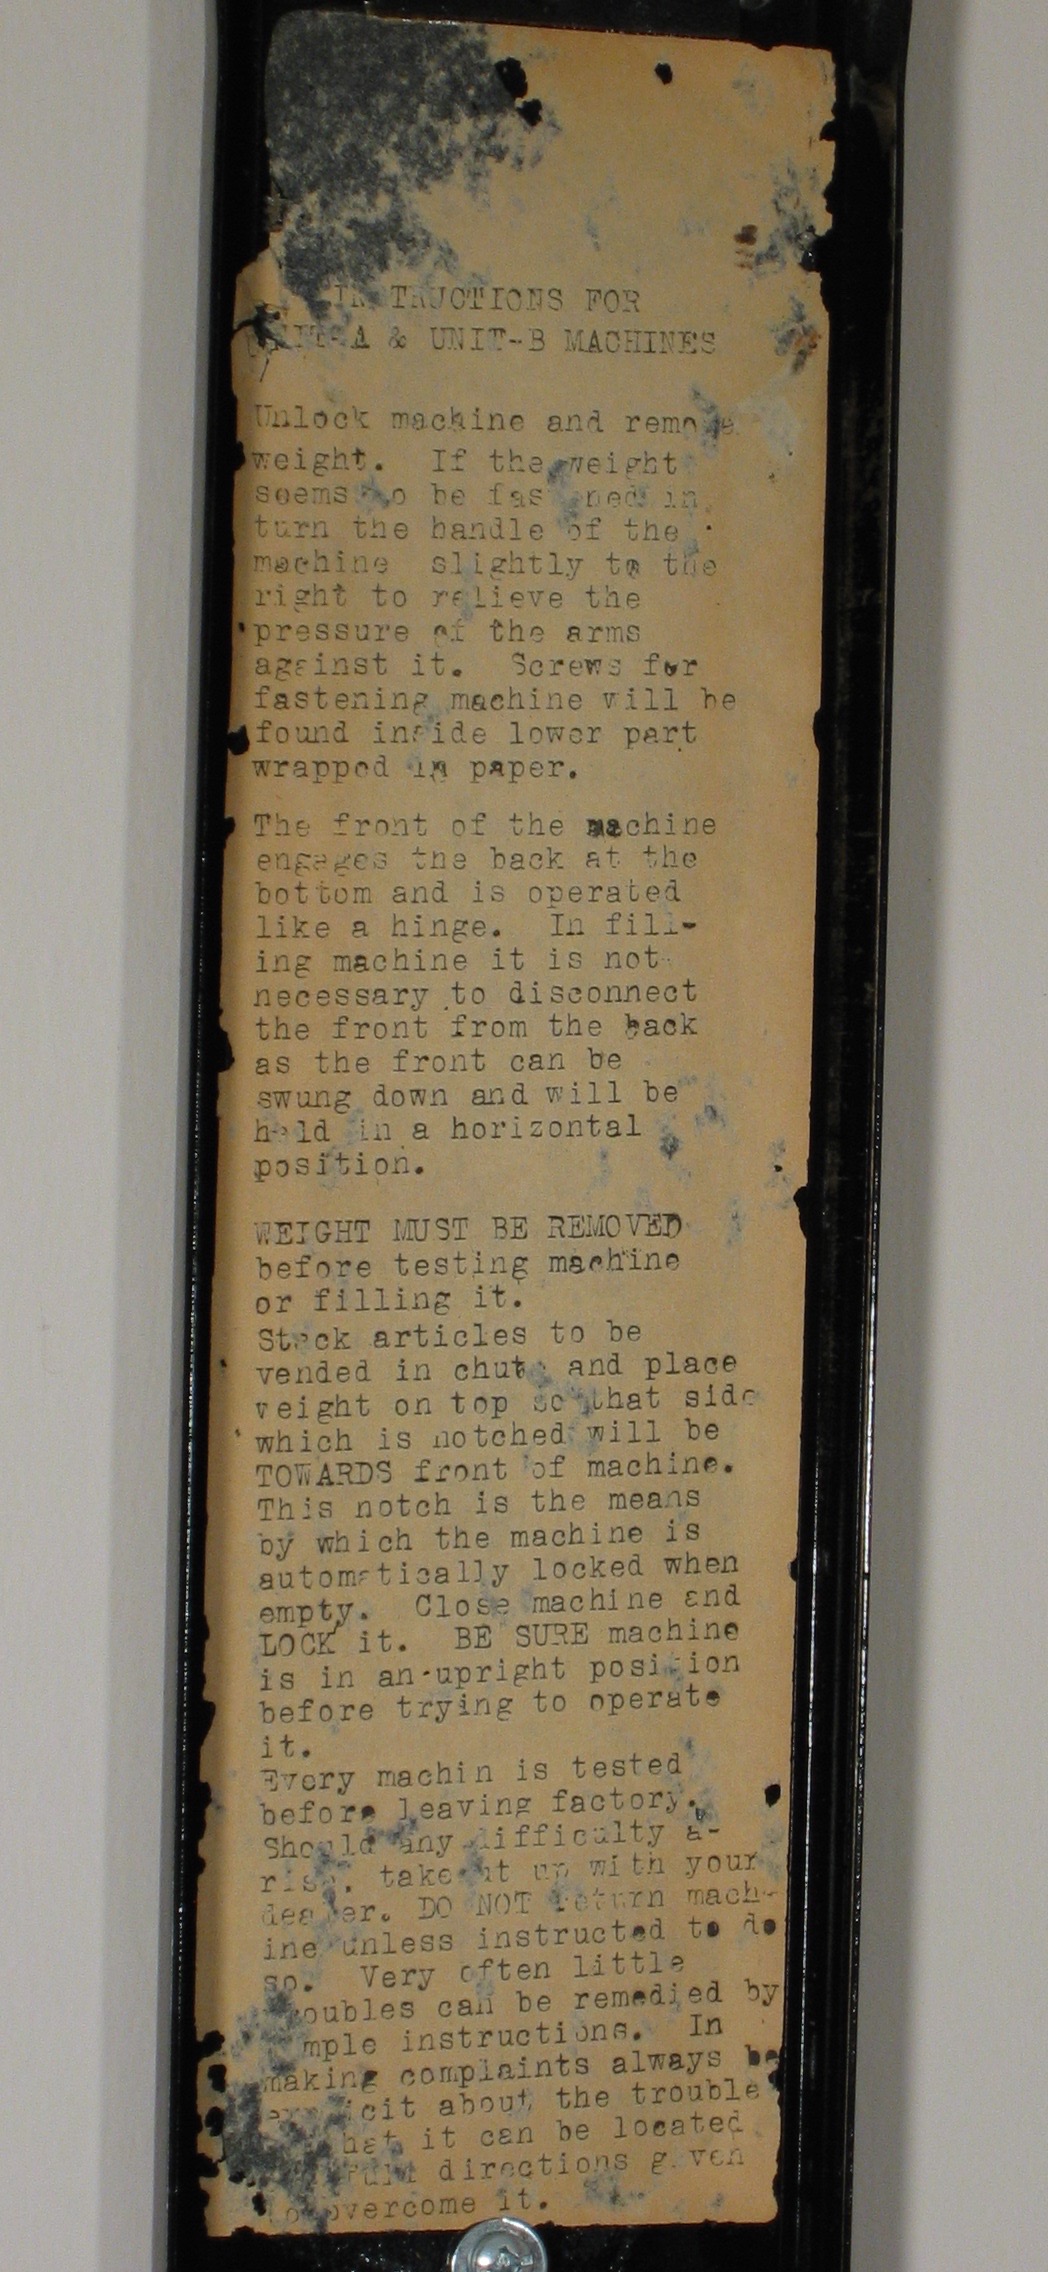 INSTRUCTIONS FOR
UNIT-A & UNIT-B MACHINES
Unlock machine and remove
weight. If the weight
seems to be fastened in,
turn the handle of the
machine slightly to the
right to relieve the
pressure of the arms
against it. Screws for
fastening machine will be
found inside lower part
wrapped in paper.
The front of the machine
engages the back at the
bottom and is operated
like a hinge. In fill-
ing machine it is not
necessary to disconnect
the front from the back
as the front can be
swung down and will be
held in a horizontal
position.
WEIGHT MUST BE REMOVED
before testing machine
or filling it.
Stack articles to be
vended in chute and place
weight on top so that side
which is notched will be
TOWARDS front of machine.
This notch is the means
by which the machine is
automatically locked when
empty. Close machine and
LOCK it. BE SURE machine
is in an upright position
before trying to operate
it.
Every machin is tested
before leaving factory.
Should any difficulty a-
rise, take it up with your
dealer. DO NOT return mach-
ine unless instructed to do
so. Very often little
troubles can be remedied by
simple instructions. In
making complaints always be
explicit about the trouble
that it can be located
full directions given
to overcome it.